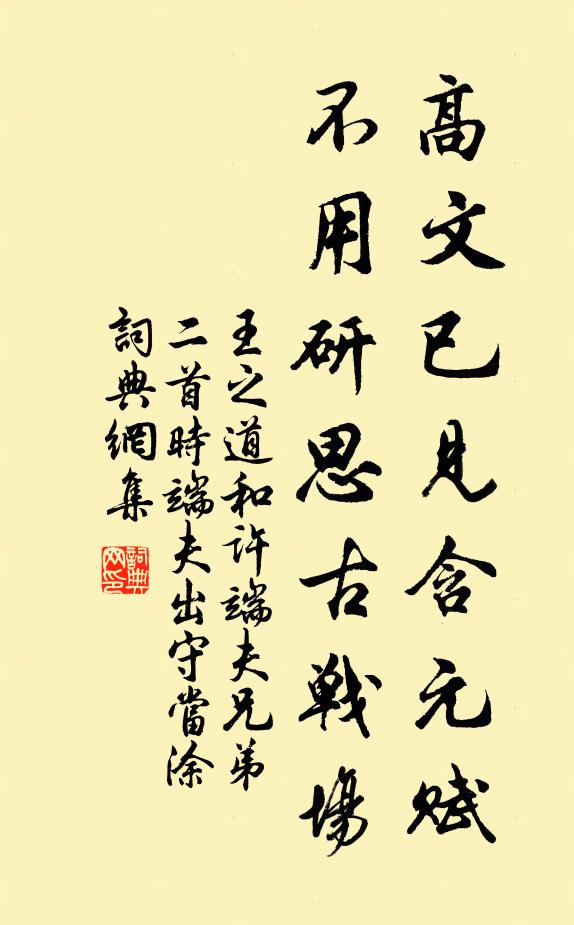 高文已見含元赋
不用研思古戰場
王之道和許端夫兄弟
二首時端夫出守當涂
詞典網集
詞典
网印